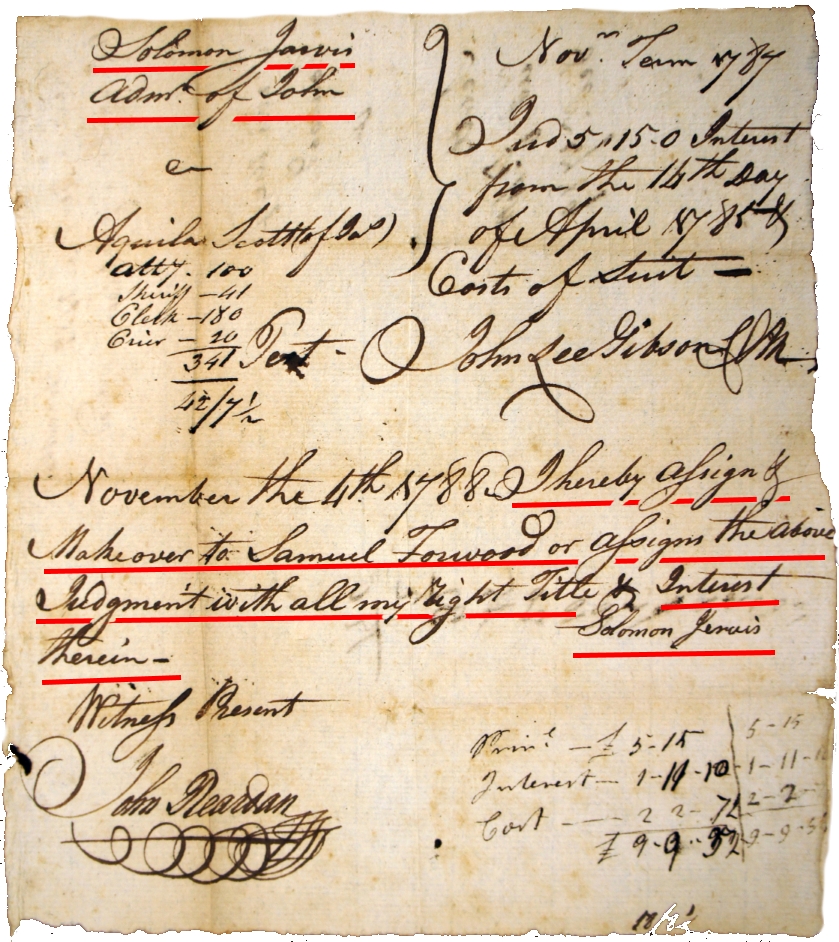 Solomon Jarvis
Admr. of John
Novr. Term 1787
Jud 5.15.0 Interest
from the 14th Day
of April 1785 &
Costs of Suit —
Aquila Scott (of Jas)
Atty. 100
Sheriff — 41
Clerk — 180
Crier — 20
341
42/7½
Test - John Lee Gibson Clk
November the 4th 1788. I hereby assign &
Makeover to Samuel Forwood or assigns the above
Judgment with all my right Title & Interest
therein —
Solomon Jervis
Witness Present
John Reardan
Prinl. — £ 5-15
Interest — 1-11-10
Cost — 2 2 7½
£ 9-9-5½
5-15
1-11-10
2-2-
9-9-5½